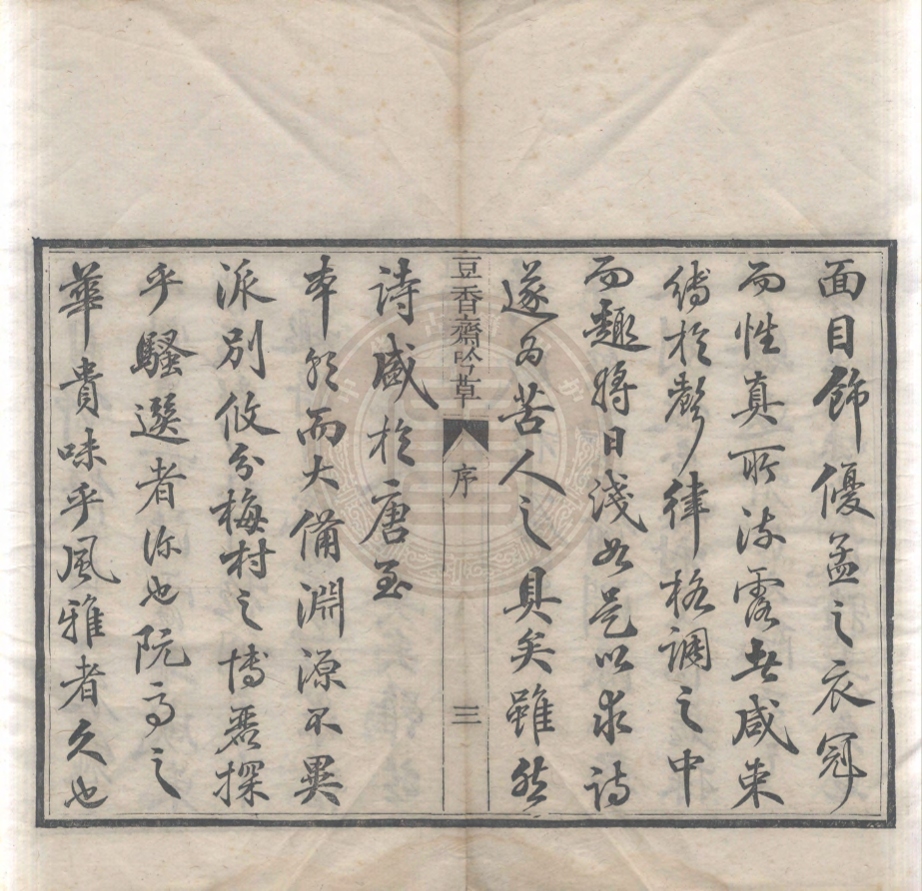 面目飾優孟之衣冠
而性真所流露者咸束
縛於聲律格調之中
而趣將日淺如是以求詩
遂為苦人之具矣雖然
豆香齋吟草
序
三
詩盛於唐至
本朝而大備淵源不異
派別攸分梅村之博麗探
乎騷選者深也阮亭之
華貴味乎風雅者久也